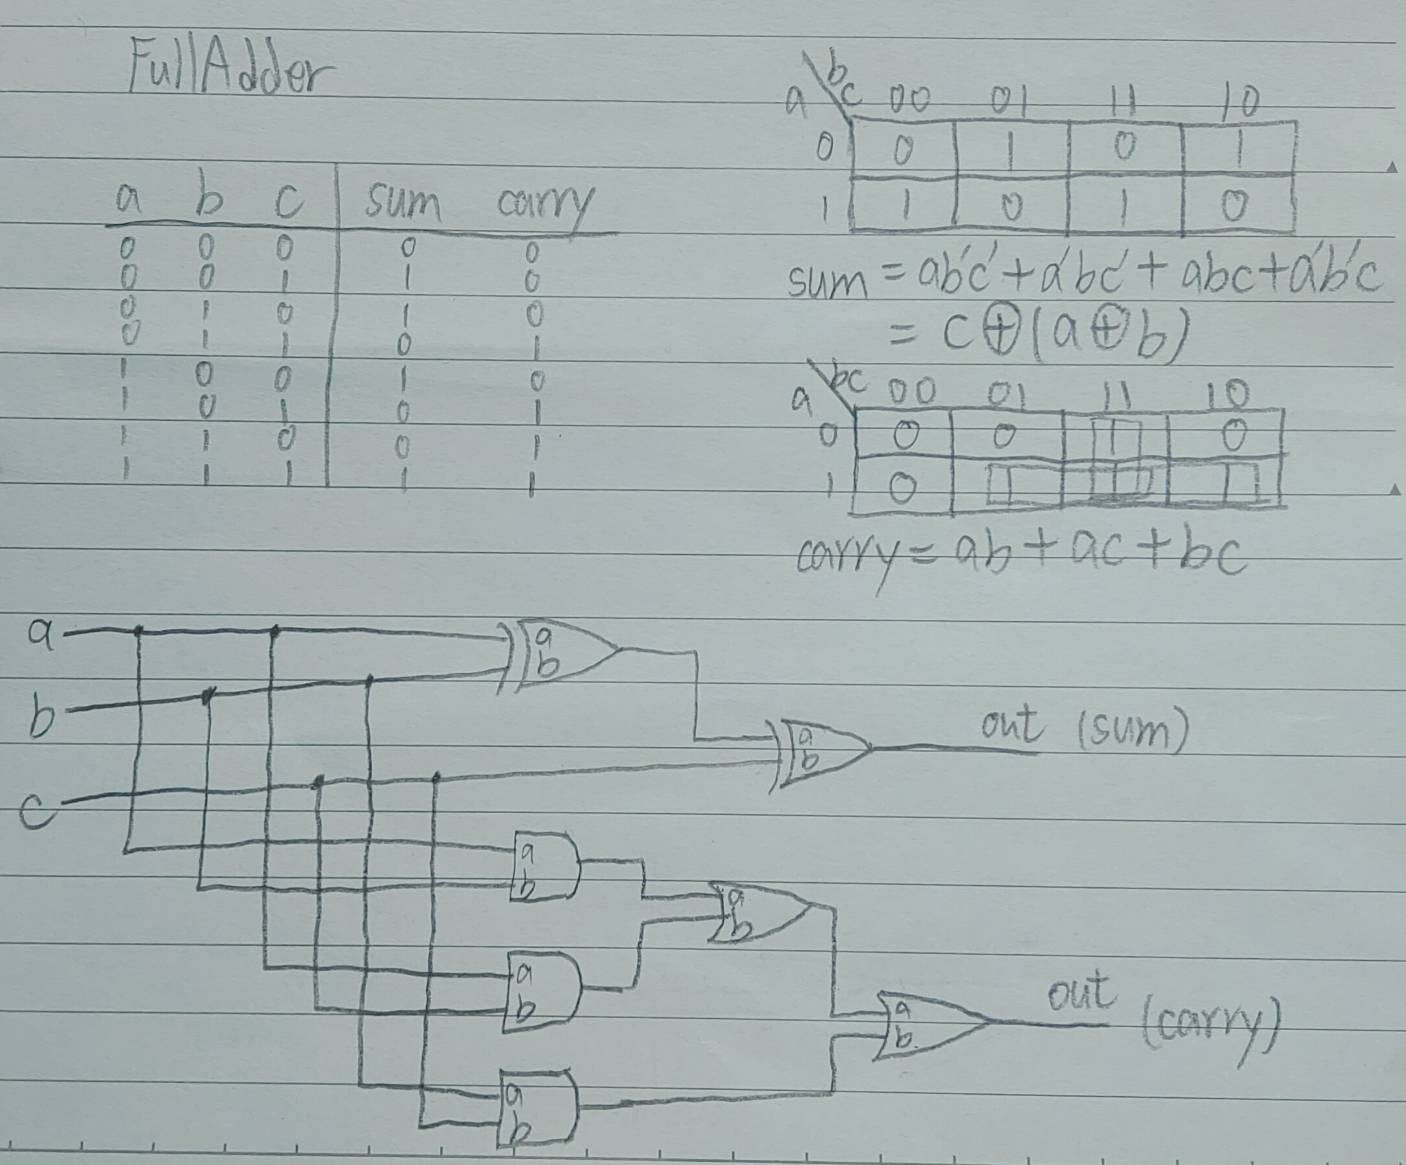 FullAdder
a b c sum carry
0 0 0 0 0
0 0 1 1 0
0 1 0 1 0
0 1 1 0 1
1 0 0 1 0
1 0 1 0 1
1 1 0 0 1
1 1 1 1 1
a bc 00 01 11 10
0 0 1 0 1
1 1 0 1 0
sum = ab'c' + a'bc' + abc + a'b'c
= c⊕(a⊕b)
a bc 00 01 11 10
0 0 0 1 0
1 0 1 1 1
carry = ab + ac + bc
a
b
c
a
b
a
b
out (sum)
a
b
a
b
a
b
a
b
a
b
out (carry)